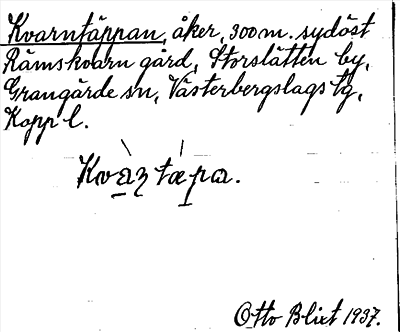 Kvarntäppan, åker, 300 m. sydöst
Rämskvarn gård, Storslätten by,
Grangärde sn, Västerbergslags tg,
Kopp l.
Kvàʒ tæpa.
Otto Blixt 1937.